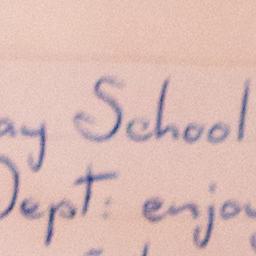 ay School
Dept: enjoy